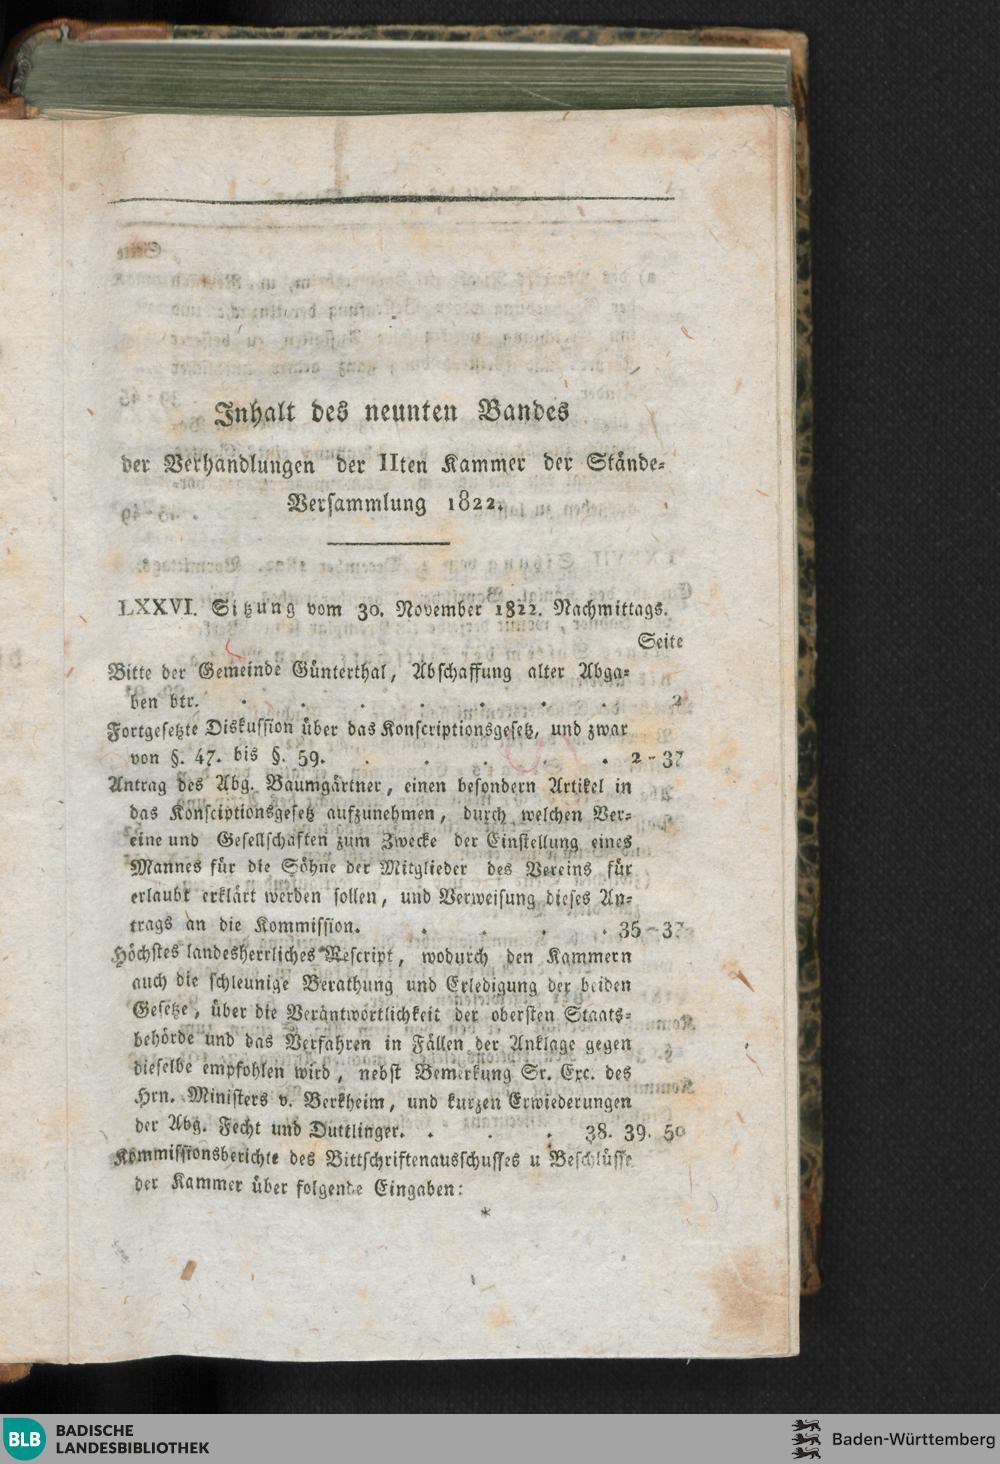 Inhalt des neunten Bandes
der Verhandlungen der IIten Kammer der Stände-
Versammlung 1822.
LXXVI. Sitzung vom 30. November 1822. Nachmittags.
Seite
Bitte der Gemeinde Günterthal, Abschaffung alter Abga-
ben btr. . . . . . . . . 2
Fortgesetzte Diskussion über das Konscriptionsgesetz, und zwar
von §. 47. bis §. 59. . . . . . 2-37
Antrag des Abg. Baumgärtner, einen besondern Artikel in
das Konsciptionsgesetz aufzunehmen, durch welchen Ver-
eine und Gesellschaften zum Zwecke der Einstellung eines
Mannes für die Söhne der Mitglieder des Vereins für
erlaubt erklärt werden sollen, und Verweisung dieses An-
trags an die Kommission. . . . . 35-37
Höchstes landesherrliches Rescript, wodurch den Kammern
auch die schleunige Berathung und Erledigung der beiden
Gesetze, über die Verantwortlichkeit der obersten Staats-
behörde und das Verfahren in Fällen der Anklage gegen
dieselbe empfohlen wird, nebst Bemerkung Sr. Exc. des
Hrn. Ministers v. Berkheim, und kurzen Erwiederungen
der Abg. Fecht und Duttlinger. . . . 38. 39. 50
Kommissionsberichte des Bittschriftenausschusses u Beschlüsse
der Kammer über folgende Eingaben:
*
BLB BADISCHE
LANDESBIBLIOTHEK
Baden-Württemberg